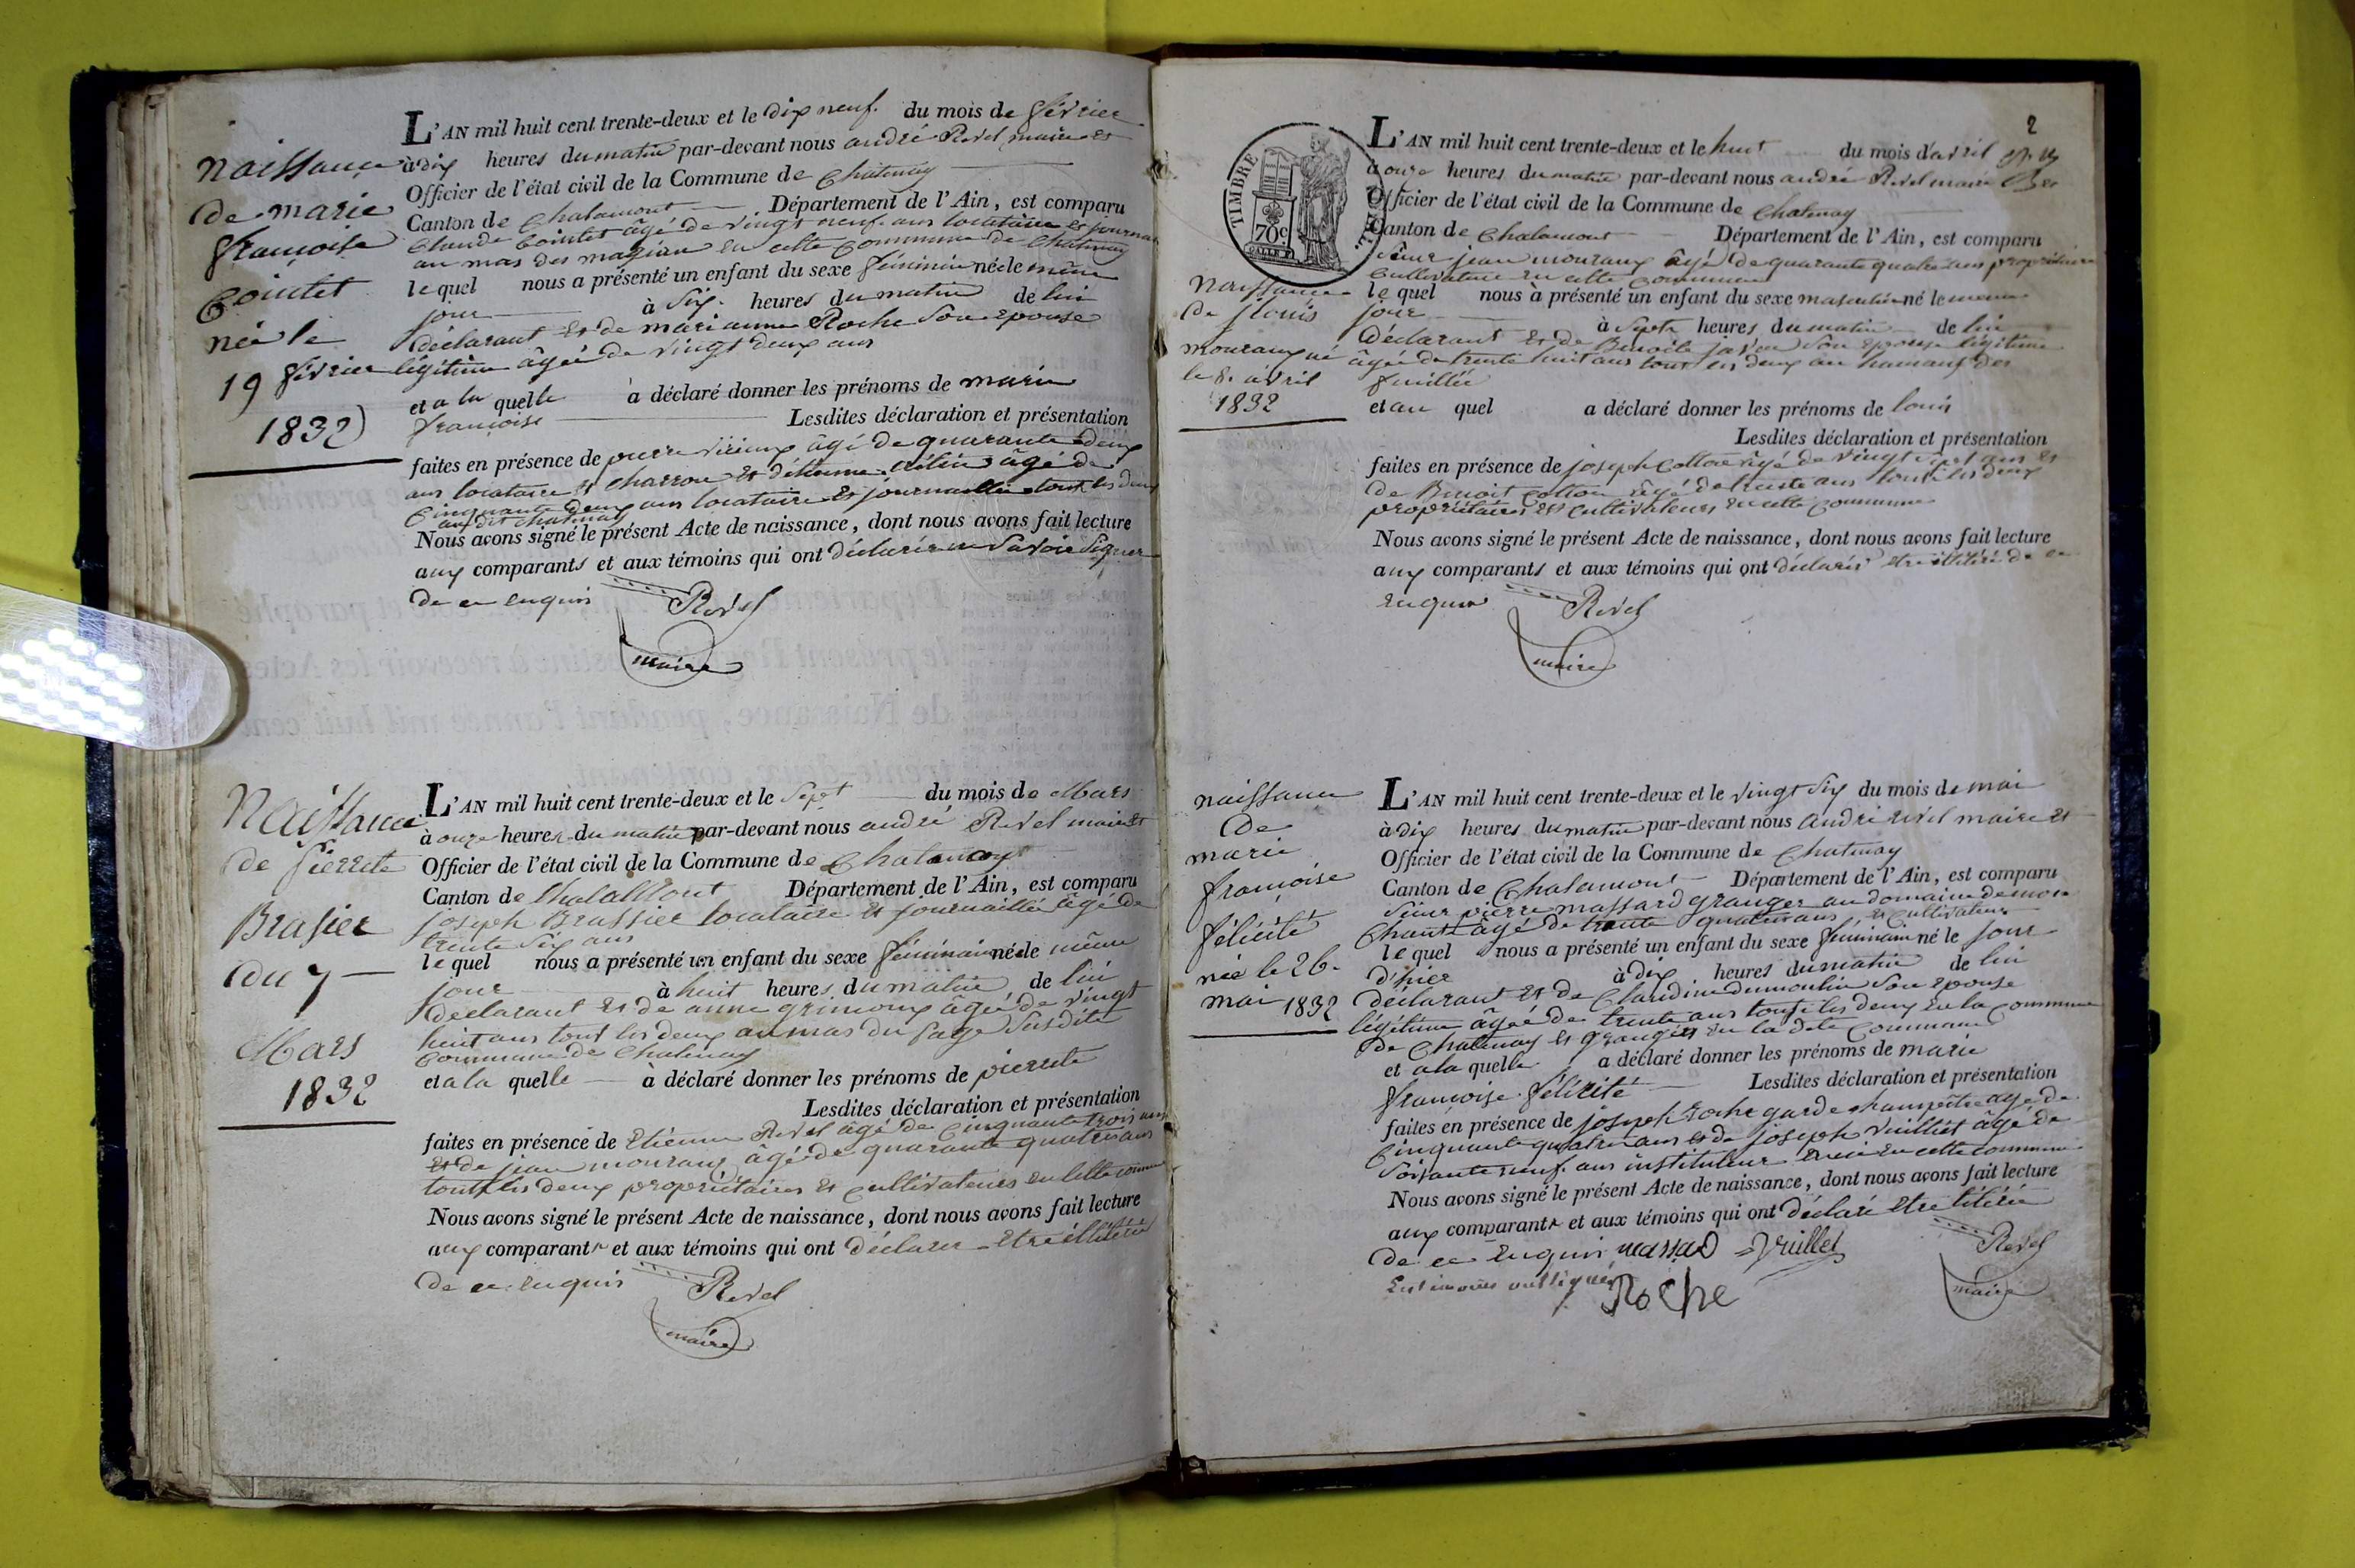 Naissance
de marie
françoise
Cointet
née le
19 février
1832
L'AN mil huit cent trente-deux et le dix neuf. du mois de février
à dix heures du matin par-devant nous andré Revel maire et
Officier de l'état civil de la Commune de Chatenay
Canton de Chalamont Département de l'Ain, est comparu
Claude Cointet âgé de vingt neuf ans locataire et journa
au mas des en cette commune de Chatenay
le quel nous a présenté un enfant du sexe féminin née le même
jour à six heures du matin de lui
déclarant et de marianne Roche son epouse
légitime âgée de vingt deux ans
et a la quelle a déclaré donner les prénoms de marie
françoise Lesdites déclaration et présentation
faites en présence de pierre âgé de quarante deux
ans locataire et charron et détienne âgé de
Cinquante deux ans locataire et journallier tout les deux
audit chatenay
Nous avons signé le présent Acte de naissance, dont nous avons fait lecture
aux comparants et aux témoins qui ont déclaré ne Savoir Signer
de ce enquis Revel
maire
Naissance
de Pierrete
Brasier
du 7
Mars
1832
L'AN mil huit cent trente-deux et le Sept du mois de Mars
à onze heures du matin par-devant nous andré Revel maire et
Officier de l'état civil de la Commune de Chatenay
Canton de Chalamont Département de l'Ain, est comparu
Joseph Brassier locataire et journaillié âgé de
trente Six ans
le quel nous a présenté un enfant du sexe féminain née le même
jour à huit heures du matin de lui
déclarant et de anne grimoux âgée de vingt
huit ans tout les deux au mas du Sage Susdite
Commune de Chatenay
et a la quelle à déclaré donner les prénoms de pierrete
Lesdites déclaration et présentation
faites en présence de Etienne Revel âgé de Cinquante trois ans
et de jean mouraux âgé de quarante quatre ans
tout les deux propriétaires et cultivateurs en cette commune
Nous avons signé le présent Acte de naissance, dont nous avons fait lecture
aux comparants et aux témoins qui ont déclarer etre illitéré
de ce enquis Revel
maire
2
TIMBRE
ROYAL
70c
Naissance
de Louis
mouraux né
le 8. avril
1832
L'AN mil huit cent trente-deux et le huit du mois d'avril
à onze heures du matin par-devant nous andré Revel maire
Officier de l'état civil de la Commune de Chatenay
Canton de Chalamont Département de l'Ain, est comparu
Sieur jean mouraux âgé de quarante quatre ans propriétaire
Cultivateur en cette commune
le quel nous à présenté un enfant du sexe masculin né le meme
jour à Sept heures du matin de lui
déclarant et de Benoite son epouse légitime
âgée de trente huit ans tout les deux au hamaux des
feuillée
et au quel a déclaré donner les prénoms de louis
Lesdites déclaration et présentation
faites en présence de joseph Cotton âgé de vingt sept ans et
de Benoit Cotton âgé de trente ans tout les deux
propriétaires et cultivateurs en cette commune
Nous avons signé le présent Acte de naissance, dont nous avons fait lecture
aux comparants et aux témoins qui ont déclarés etre illitéré de ce
enquis Revel
maire
naissance
de
marie
françoise
félicité
née le 26.
mai 1832
L'AN mil huit cent trente-deux et le vingt Six du mois de mai
à dix heures du matin par-devant nous André revel maire et
Officier de l'état civil de la Commune de Chatenay
Canton de Chalamont Département de l'Ain, est comparu
Sieur pierre massard granger au domaine de mon
Chaut âgé de trente quatre ans, et Cultivateur
le quel nous a présenté un enfant du sexe féminain né le jour
d'hier à dix heures du matin de lui
déclarant et de Claudine dumoulin Son epouse
légitime âgée de trente ans tout les deux en la commune
de Chatenay et grangers en la dite Commune
et a la quelle a déclaré donner les prénoms de marie
françoise félicité Lesdites déclaration et présentation
faites en présence de joseph roche garde champêtre age de
Cinquante quatre ans et de joseph vuilliet âgé de
Soixante neuf ans instituteur en cette commune
Nous avons signé le présent Acte de naissance, dont nous avons fait lecture
aux comparants et aux témoins qui ont déclaré etre litéré
de ce enquis massard Vuillet Revel
Roche maire